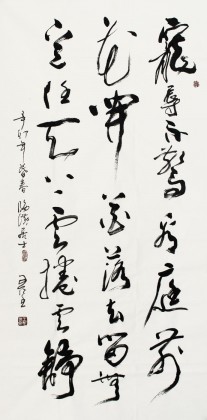 寵辱不驚看庭前
花開花落去留無
意任天雲捲雲舒
辛卯年暮春居士